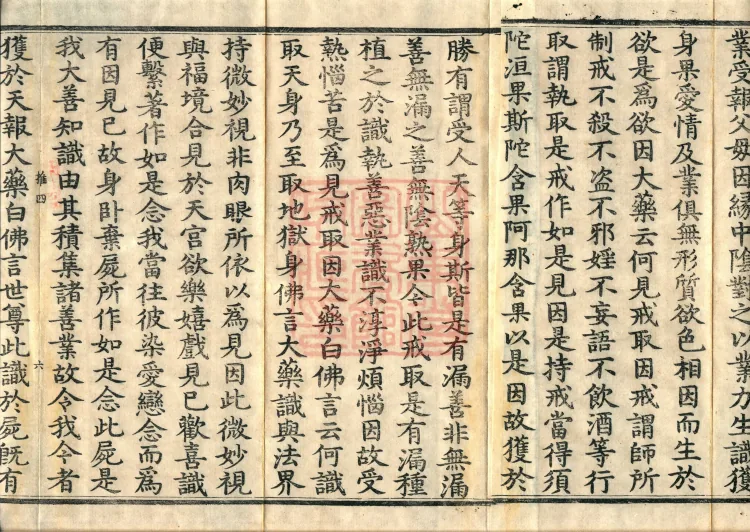 業受報父母因緣中陰對之以業力生識獲
身果愛情及業俱無形質欲色相因而生於
欲是為欲因大藥云何見戒取因戒謂師所
制戒不殺不盗不邪婬不妄語不飲酒等行
取謂執取是戒作如是見因是持戒當得須
陀洹果斯陀含果阿那含果以是因故獲於
勝有謂受人天等身斯皆是有漏善非無漏
善無漏之善無陰熟果今此戒取是有漏種
植之於識執善惡業識不淳淨煩惱因故受
熱惱苦是為見戒取因大藥白佛言云何識
取天身乃至取地獄身佛言大藥識與法界
持微妙視非肉眼所依以為見因此微妙視
與福境合見於天宮欲樂嬉戲見已歡喜識
便繫著作如是念我當往彼染愛戀念而為
有因見已故身卧棄屍所作如是念此屍是
我大善知識由其積集諸善業故令我今者
推四
六
獲於天報大藥白佛言世尊此識於屍旣有